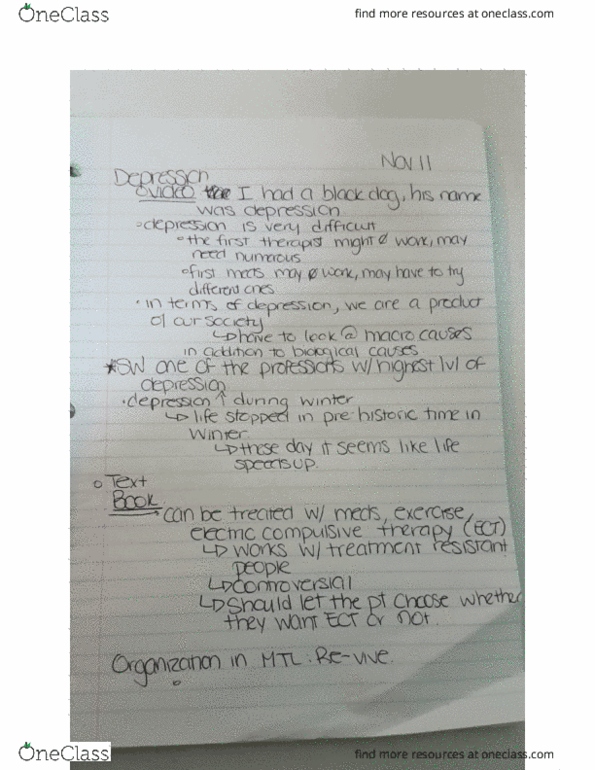 OneClass
find more resources at oneclass.com
Nov 11
Depression
video I had a black dog, his name
was depression
depression is very difficult
the first therapist might ∅ work, may
need numerous
first meds may ∅ work, may have to try
different ones
in terms of depression, we are a product
of our society
↳ have to look @ macro causes
in addition to biological causes.
*SW one of the professions w/ highest lvl of
depression
depression ↑ during winter
↳ life stopped in pre-historic time in
winter
↳ these day it seems like life
speeds up.
Text
Book
can be treated w/ meds, exercise,
electric compulsive therapy (ECT)
↳ works w/ treatment resistant
people
↳ controversial
↳ should let the pt choose whether
they want ECT or not.
Organization in MTL: Re-vive.
OneClass
find more resources at oneclass.com